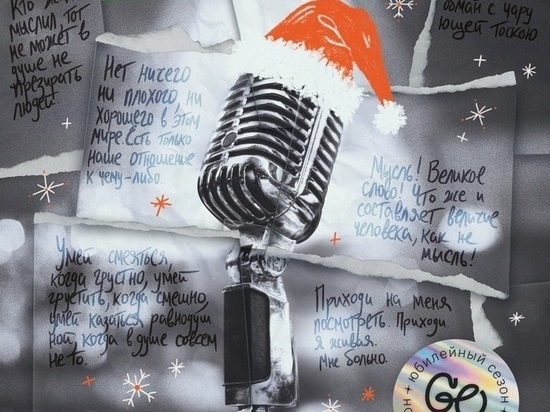 Кто жил и
мыслил, тот
не может в
душе не
презирать
людей!
обман с чару
ющей тоскою
Нет ничего
ни плохого, ни
хорошего в этом
мире. Есть только
наше отношение
к чему-либо.
Мысль! Великое
слово! Что же и
составляет величие
человека, как не
мысль!
Умей смеяться,
когда грустно, умей
грустить, когда смешно,
умей казаться равнодуш
ной, когда в душе совсем
не то.
Приходи на меня
посмотреть. Приходи.
Я живая.
Мне больно.
он + юбилейный сезон